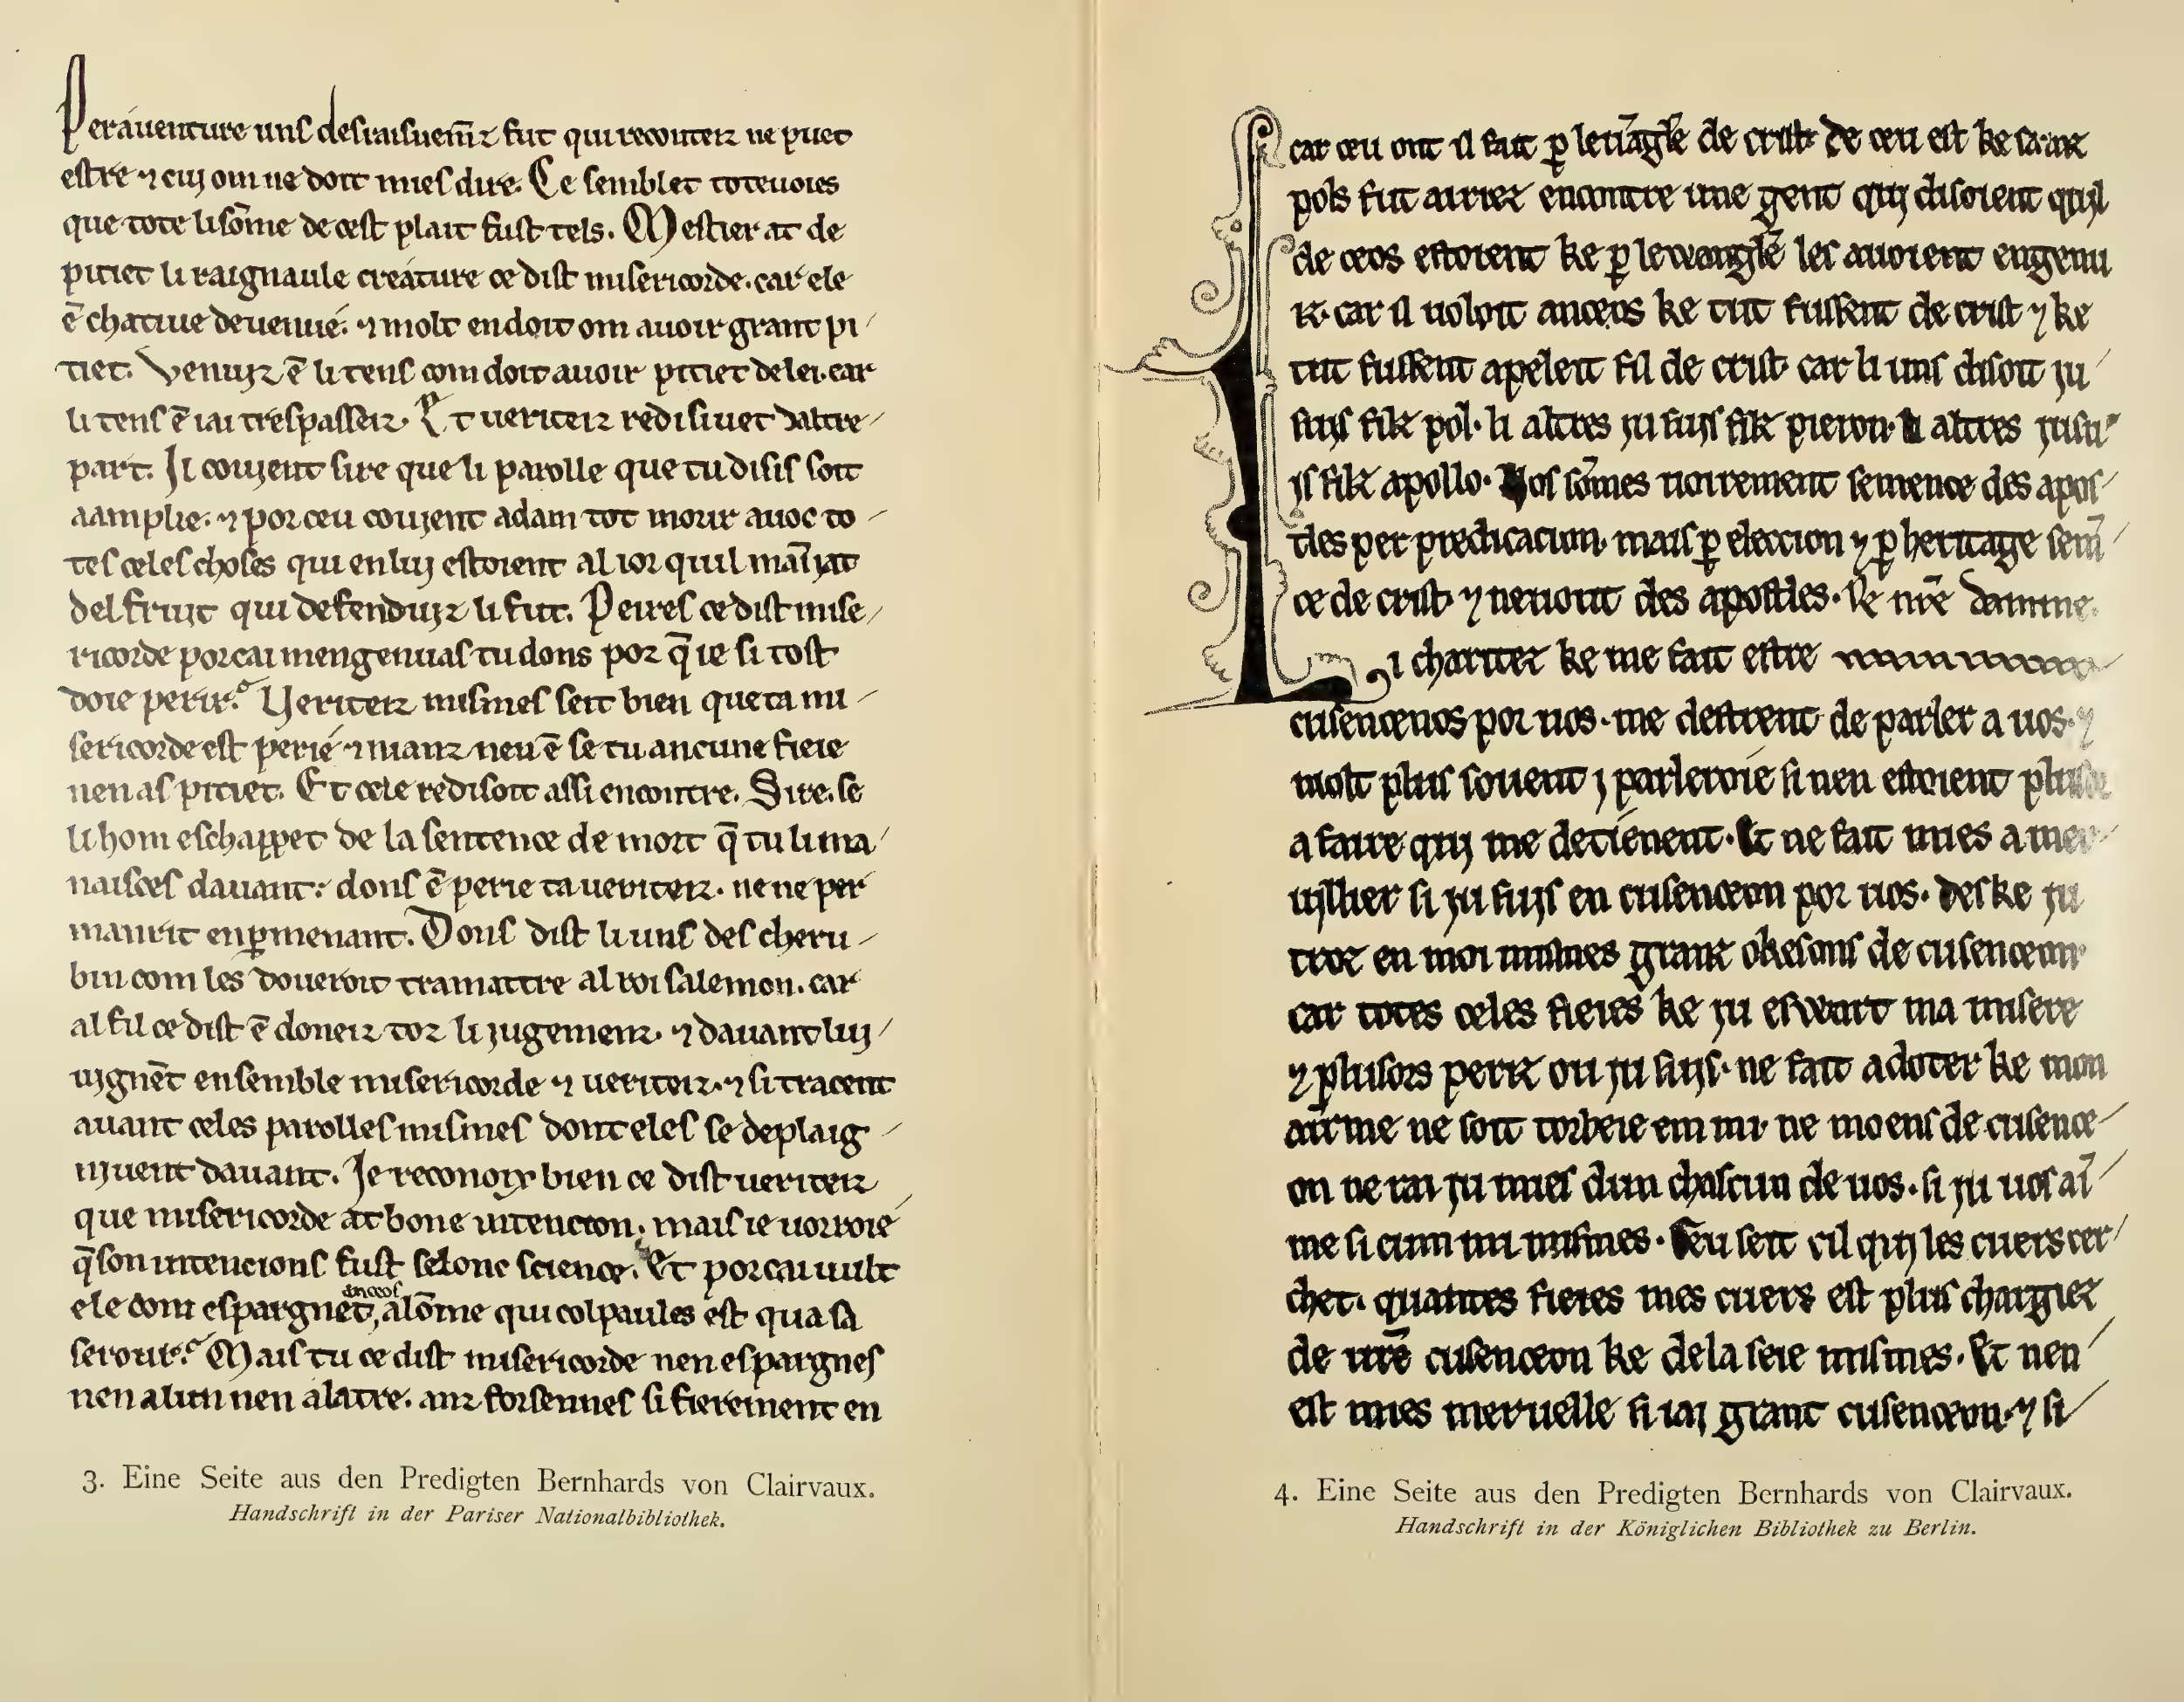 Perauenture unſ deſraiſuem̄z fut qui recouteiz ne puet
eſtre ⁊ cuj om ne doit mieſ dire. Ce ſemblet toteuoies
que tote li sōme de ceſt plait fuſt tels. Meſtier at de
pitiet li raignaule creature ce diſt miſericorde. car ele
ē chatiue deuenue. ⁊ molt en doit om auoir grant pi
tiet. Venuiz ē li tenſ com doit auoir pitiet de lei. car
li tenſ ē iai treſpaſſeiz. Et ueriteiz rediſiuet daltre
part. Il coujent ſire que li parolle que tu diſiſ ſoit
aamplie. ⁊ por ceu coujent adam tot morir auoc to
teſ celeſ choſes qui en luj eſtoient al ior quil maniat
del frujt qui defendujz li fut. Peireſ ce diſt miſe
ricorde por cai mengenuaſ tu dons por q̄ ie ſi toſt
doie perir? Ueriteiz miſmeſ ſeit bien que ta mi
ſericorde eſt perie ⁊ nianz neu ē ſe tu ancune fieie
nen aſ pitiet. Et cele rediſoit aſſi encontre. Sire. ſe
li hom eſchappet de la ſentence de mort q̄ tu li ma
naiſceſ dauant: donſ ē perie ta ueriteiz. ne ne per
manrit en p̱menant. Donſ diſt li unſ deſ cheru
bin com les doueroit tramattre al roi ſalemon. car
al fil ce diſt ē doneiz toz li jugemenz. ⁊ dauant luj
ujgnēt enſemble miſericorde ⁊ ueriteiz. ⁊ ſi tracent
auant celes parolleſ miſmeſ dont eleſ ſe deplaig
njuent dauant. Je reconoix bien ce diſt ueriteiz
que miſericorde at bone intencion. maiſ ie uorroie
q̄ ſon intencionſ fuſt ſelonc ſcience. Et por cai uult
ele com eſpargnet anceoſ alōme qui colpaules eſt qua ſa
ſerour? Maiſ tu ce diſt miſericorde nen eſpargnes
nen alun nen alatre. anz forſenneſ ſi fierement en
3. Eine Seite aus den Predigten Bernhards von Clairvaux.
Handschrift in der Pariser Nationalbibliothek.
car ceu ont il fait p̱ leuāgl̄e de criſt. De ceu eſt ke ſainz
pols fut airiez encontre une gent quj diſoient quil
de ceos eſtoient ke p̱ lewangl̄e leſ auoient engenu
iz. car il uoloit anceos ke tuit fuſſent de criſt ⁊ ke
tuit fuſſent apeleit fil de criſt. car li unſ diſoit ju
ſujſ filz pol. li altres ju ſujſ filz pieron. li altres ju ſu
jſ filz apollo. Nos ſōmes uoirement ſemence des apoſ
tles per predicacion. maiſ p̱ eleccion ⁊ p̱ heritage ſem̄
ce de criſt. ⁊ neuout des apoſtles. Ke nr̄e damme.
Li chariteiz ke me fait eſtre
cuſencenos por uos. me deſtrent de parler a uos. ⁊
molt pluſ ſouent j parleroie ſi nen eſtoient pluſo
a faire quj me detienent. Et ne fait mies a mer
ujllier ſi ju ſujſ en cuſencеon por uos. deſ ke ju
troz en moi miſmes granz okeſonſ de cuſenceon.
car totes celes fieies ke ju eſwart ma miſere
⁊ pluſors perilz ou ju ſujſ. ne fait a doter ke mon
airme ne ſoit torbeie em mi. ne moenſ de cuſence
on ne rai ju mieſ dun chaſcun de uos. ſi ju uoſ ai
me ſi cum mi miſmes. Ceu ſeit cil quj les cuers cer
chet. quantes fieies mes cuers eſt pluſ chargiez
de ur̄e cuſenceon ke de la ſeie miſmes. Et nen
eſt mies meruelle ſi iaj grant cuſenceon. ⁊ ſi
4. Eine Seite aus den Predigten Bernhards von Clairvaux.
Handschrift in der Königlichen Bibliothek zu Berlin.